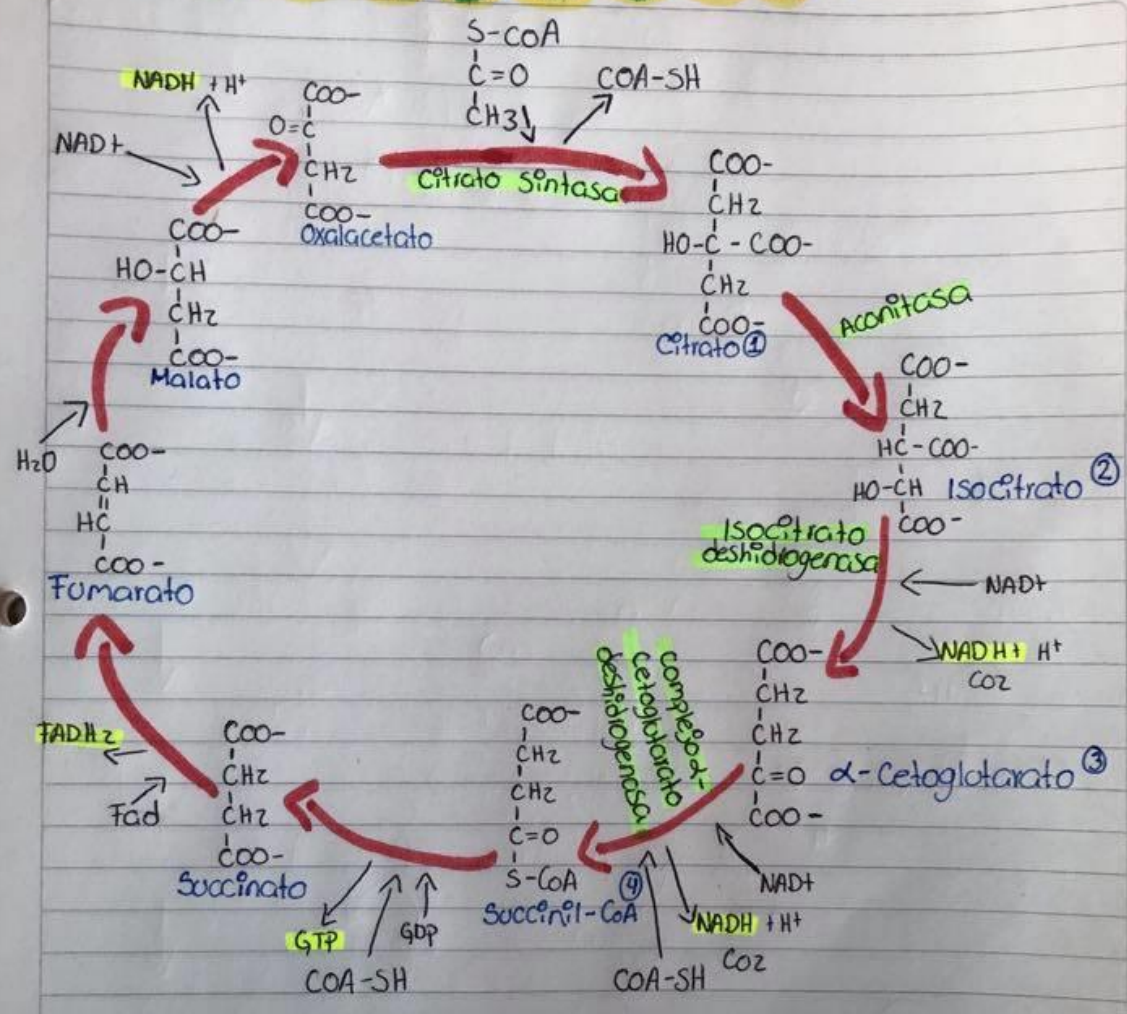 S-COA
C=O
CH3
COA-SH
NADH + H+
NAD+
COO-
O=C
CH2
COO-
Oxalacetato
Citrato Sintasa
COO-
CH2
HO-C-COO-
CH2
COO-
Citrato ①
Aconitasa
COO-
CH2
HC-COO-
HO-CH
COO-
Isocitrato ②
Isocitrato
deshidrogenasa
NAD+
NADH+ H+
CO2
COO-
CH2
CH2
C=O
COO-
α-Cetoglutarato ③
complejo α-
cetoglutarato
deshidrogenasa
NAD+
NADH + H+
CO2
COA-SH
COO-
CH2
CH2
C=O
S-COA
④
Succinil-CoA
GTP
GDP
COA-SH
COO-
CH2
CH2
COO-
Succinato
FADH2
Fad
COO-
CH
HC
COO-
Fumarato
H2O
COO-
HO-CH
CH2
COO-
Malato